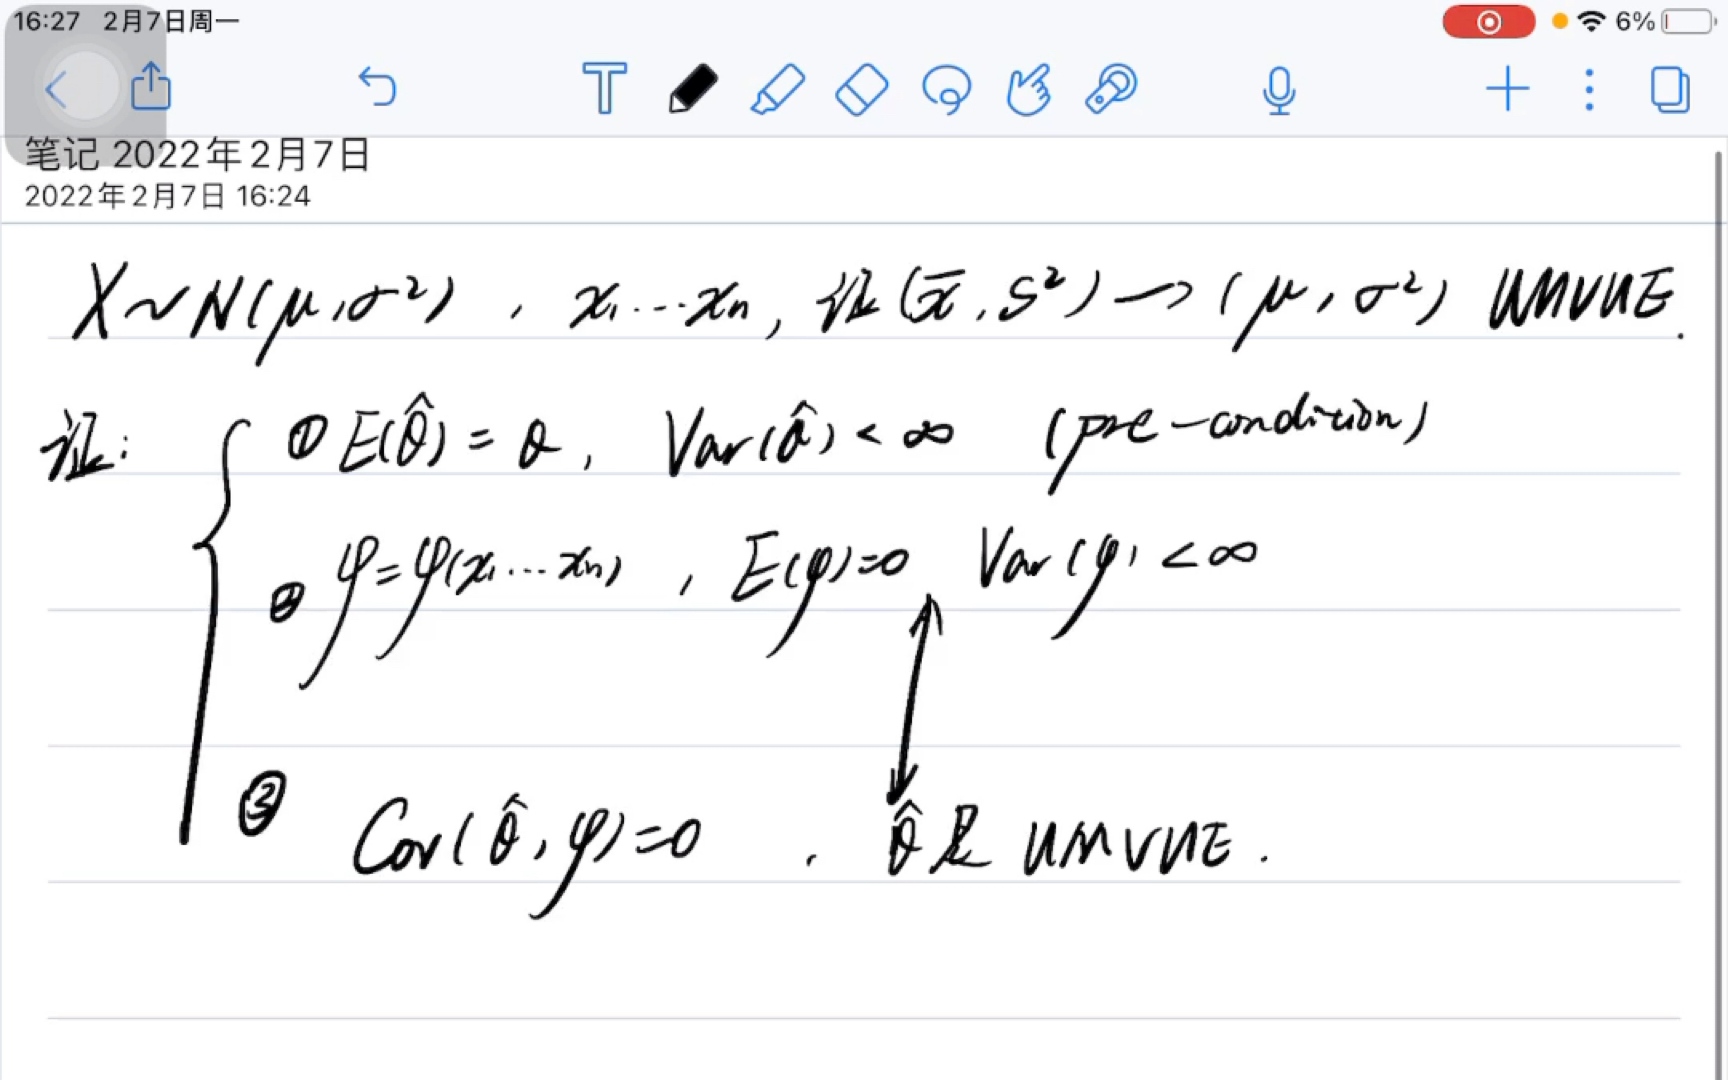 16:27 2月7日周一
6%
笔记 2022年2月7日
2022年2月7日 16:24
X~N(μ,σ²), x₁...xₙ, 证(x̄,S²)→(μ,σ²) UMVUE.
证: ① E(θ̂)=θ, Var(θ̂)<∞ (pre-condition)
② φ=φ(x₁...xₙ), E(φ)=0 Var(φ)<∞
③ Cov(θ̂,φ)=0, θ̂是 UMVUE.